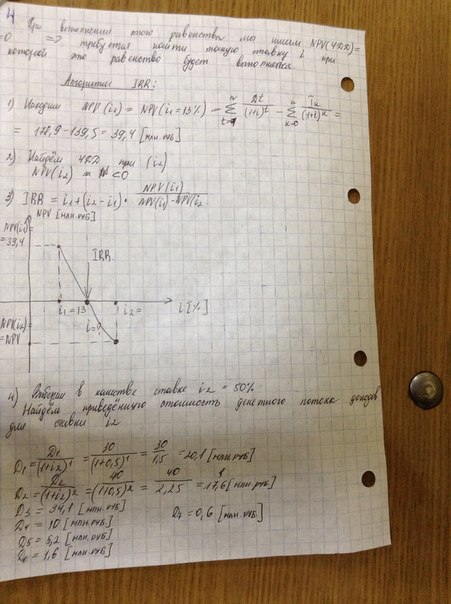 4
При выполнении того равенства мы имеем NPV(ЧДД)=
=0 => требуется найти такую ставку i при
которой это равенство будет выполняться.
Алгоритм IRR:
1) Находим NPV(i1) = NPV(i=13%) = Σ Дt/(1+i)^t - Σ Iк/(1+i)^к =
= 178,9 - 139,5 = 39,4 [млн.руб]
2) Найдём ЧДД при (i2)
NPV(i2) < 0
3) IRR = i1 + (i2 - i1) · NPV(i1)/NPV(i1) - NPV(i2
NPV [млн.руб]
NPV(i1)=
=39,4
IRR
i1=13
i=?
i2=
i [%]
NPV(i2)=
=NPV
4) Выберем в качестве ставки i2 = 50%
Найдём приведённую стоимость денежного потока доходов
для ставки i2
D1 = D1/(1+i2)^1 = 30/(1+0,5)^1 = 30/1,5 = 20,1 [млн.руб]
D2 = D2/(1+i2)^2 = 40/(1+0,5)^2 = 40/2,25 = 17,6 [млн.руб]
D3 = 34,1 [млн.руб]
D7 = 0,6 [млн.руб]
D4 = 10 [млн.руб]
D5 = 5,2 [млн.руб]
D6 = 1,6 [млн.руб]